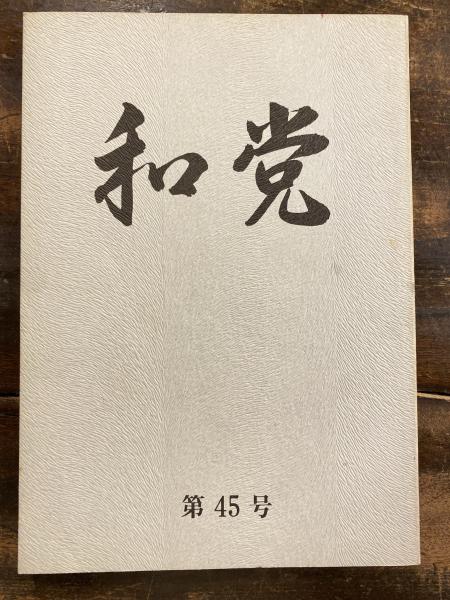 和党
第 45 号